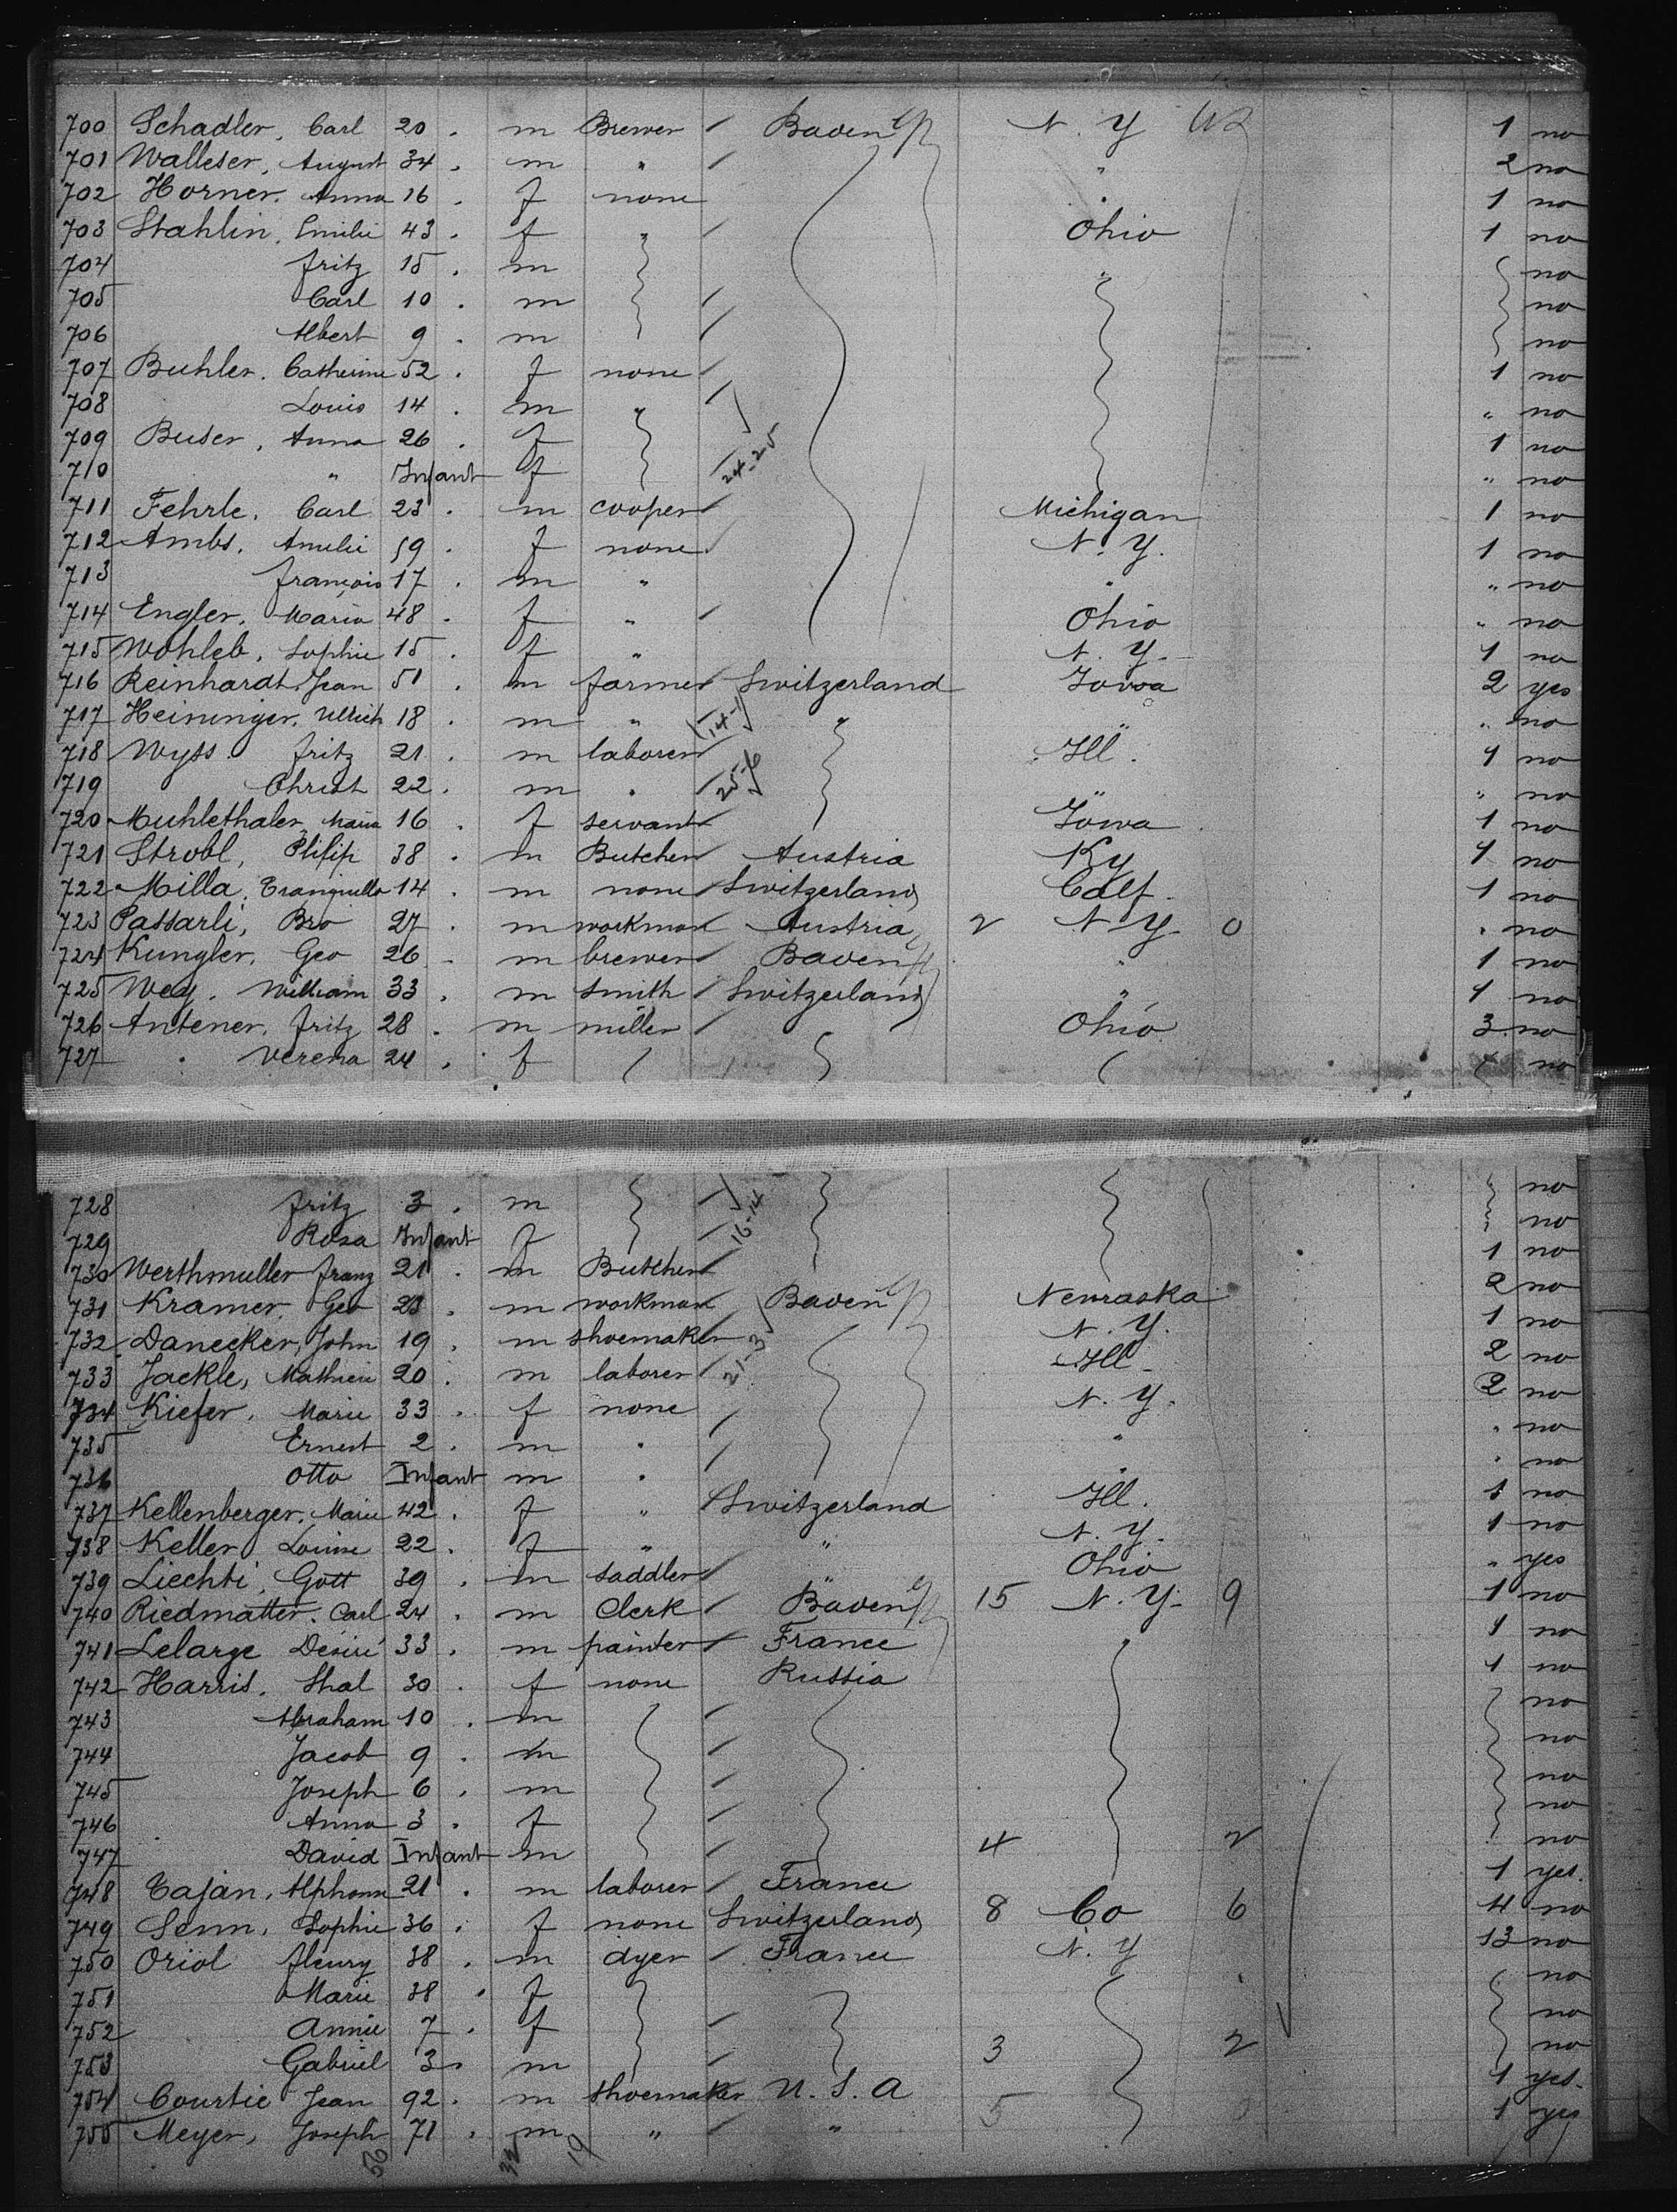 700 Schadler, Carl 20 . m Brewer / Baden N. Y 1 no
701 Walleser, August 34 . m " / " 2 no
702 Horner, Anna 16 . f none " 1 no
703 Stahlin, Emilie 43 . f " / Ohio 1 no
704 Fritz 15 . m " no
705 Carl 10 . m / no
706 Albert 9 . m / no
707 Buhler, Catherine 52 . f none / 1 no
708 Louis 14 . m " / " no
709 Buser, Anna 26 . f 1 no
710 " Infant f 24-25 " no
711 Fehrle, Carl 23 . m cooper / Michigan 1 no
712 Ambs, Amelie 59 . f none / N. Y. 1 no
713 François 17 . m " " " no
714 Engler, Maria 48 . f " / Ohio " no
715 Wohleb, Sophie 15 . f " N. Y. 1 no
716 Reinhardt, Jean 51 . m farmer / Switzerland Iowa 2 yes
717 Heininger, Ullrich 18 . m " " " " no
718 Wyss Fritz 21 . m laborer / Ill. 1 no
719 Christ 22 . m " " " no
720 Muhlethaler, Maria 16 . f servant / Iowa 1 no
721 Strobl, Philip 38 . m Butcher / Austria Ky 1 no
722 Milla, Tranquillo 14 . m none / Switzerland Calf. 1 no
723 Passarli, Bro 27 . m workman Austria 2 N. Y. 0 " no
724 Kungler, Geo 26 . m brewer / Baden " 1 no
725 Wey, William 33 . m Smith / Switzerland " 1 no
726 Antener, Fritz 28 . m miller / Ohio 3 no
727 " Verena 24 . f no
728 Fritz 3 . m / no
729 Rosa Infant f / 16-14 no
730 Werthmuller Franz 21 . m Butcher / 1 no
731 Kramer Geo 23 . m workman Baden Nevraska 2 no
732 Danecker, John 19 . m shoemaker N. Y. 1 no
733 Jackle, Mathieu 20 . m laborer / 21-3 Ill. 2 no
734 Kiefer, Marie 33 . f none N. Y. 2 no
735 Ernest 2 . m " / " " no
736 Otto Infant m " / " " no
737 Kellenberger, Marie 42 . f " / Switzerland Ill. 1 no
738 Keller Louise 22 . f " " N. Y. 1 no
739 Liechti, Gott 39 . m saddler / " Ohio " yes
740 Riedmatter, Carl 24 . m Clerk / Baden 15 N. Y. 9 1 no
741 Lelarge Désiré 33 . m painter / France " 1 no
742 Harris, Shal 30 . f none Russia 1 no
743 Abraham 10 . m / no
744 Jacob 9 . m / no
745 Joseph 6 . m / no
746 Anna 3 . f / no
747 David Infant m / 4 2 no
748 Cajan, Alphonse 21 . m laborer / France 1 yes.
749 Senn, Sophie 36 . f none Switzerland 8 Co 6 4 no
750 Oriol Fleury 38 . m dyer / France N. Y 13 no
751 Marie 38 . f no
752 Annie 7 . f / no
753 Gabriel 3 . m / 3 2 no
754 Courtie Jean 92 . m shoemaker U. S. A 1 yes.
755 Meyer, Joseph 71 . m " / " 5 1 yes